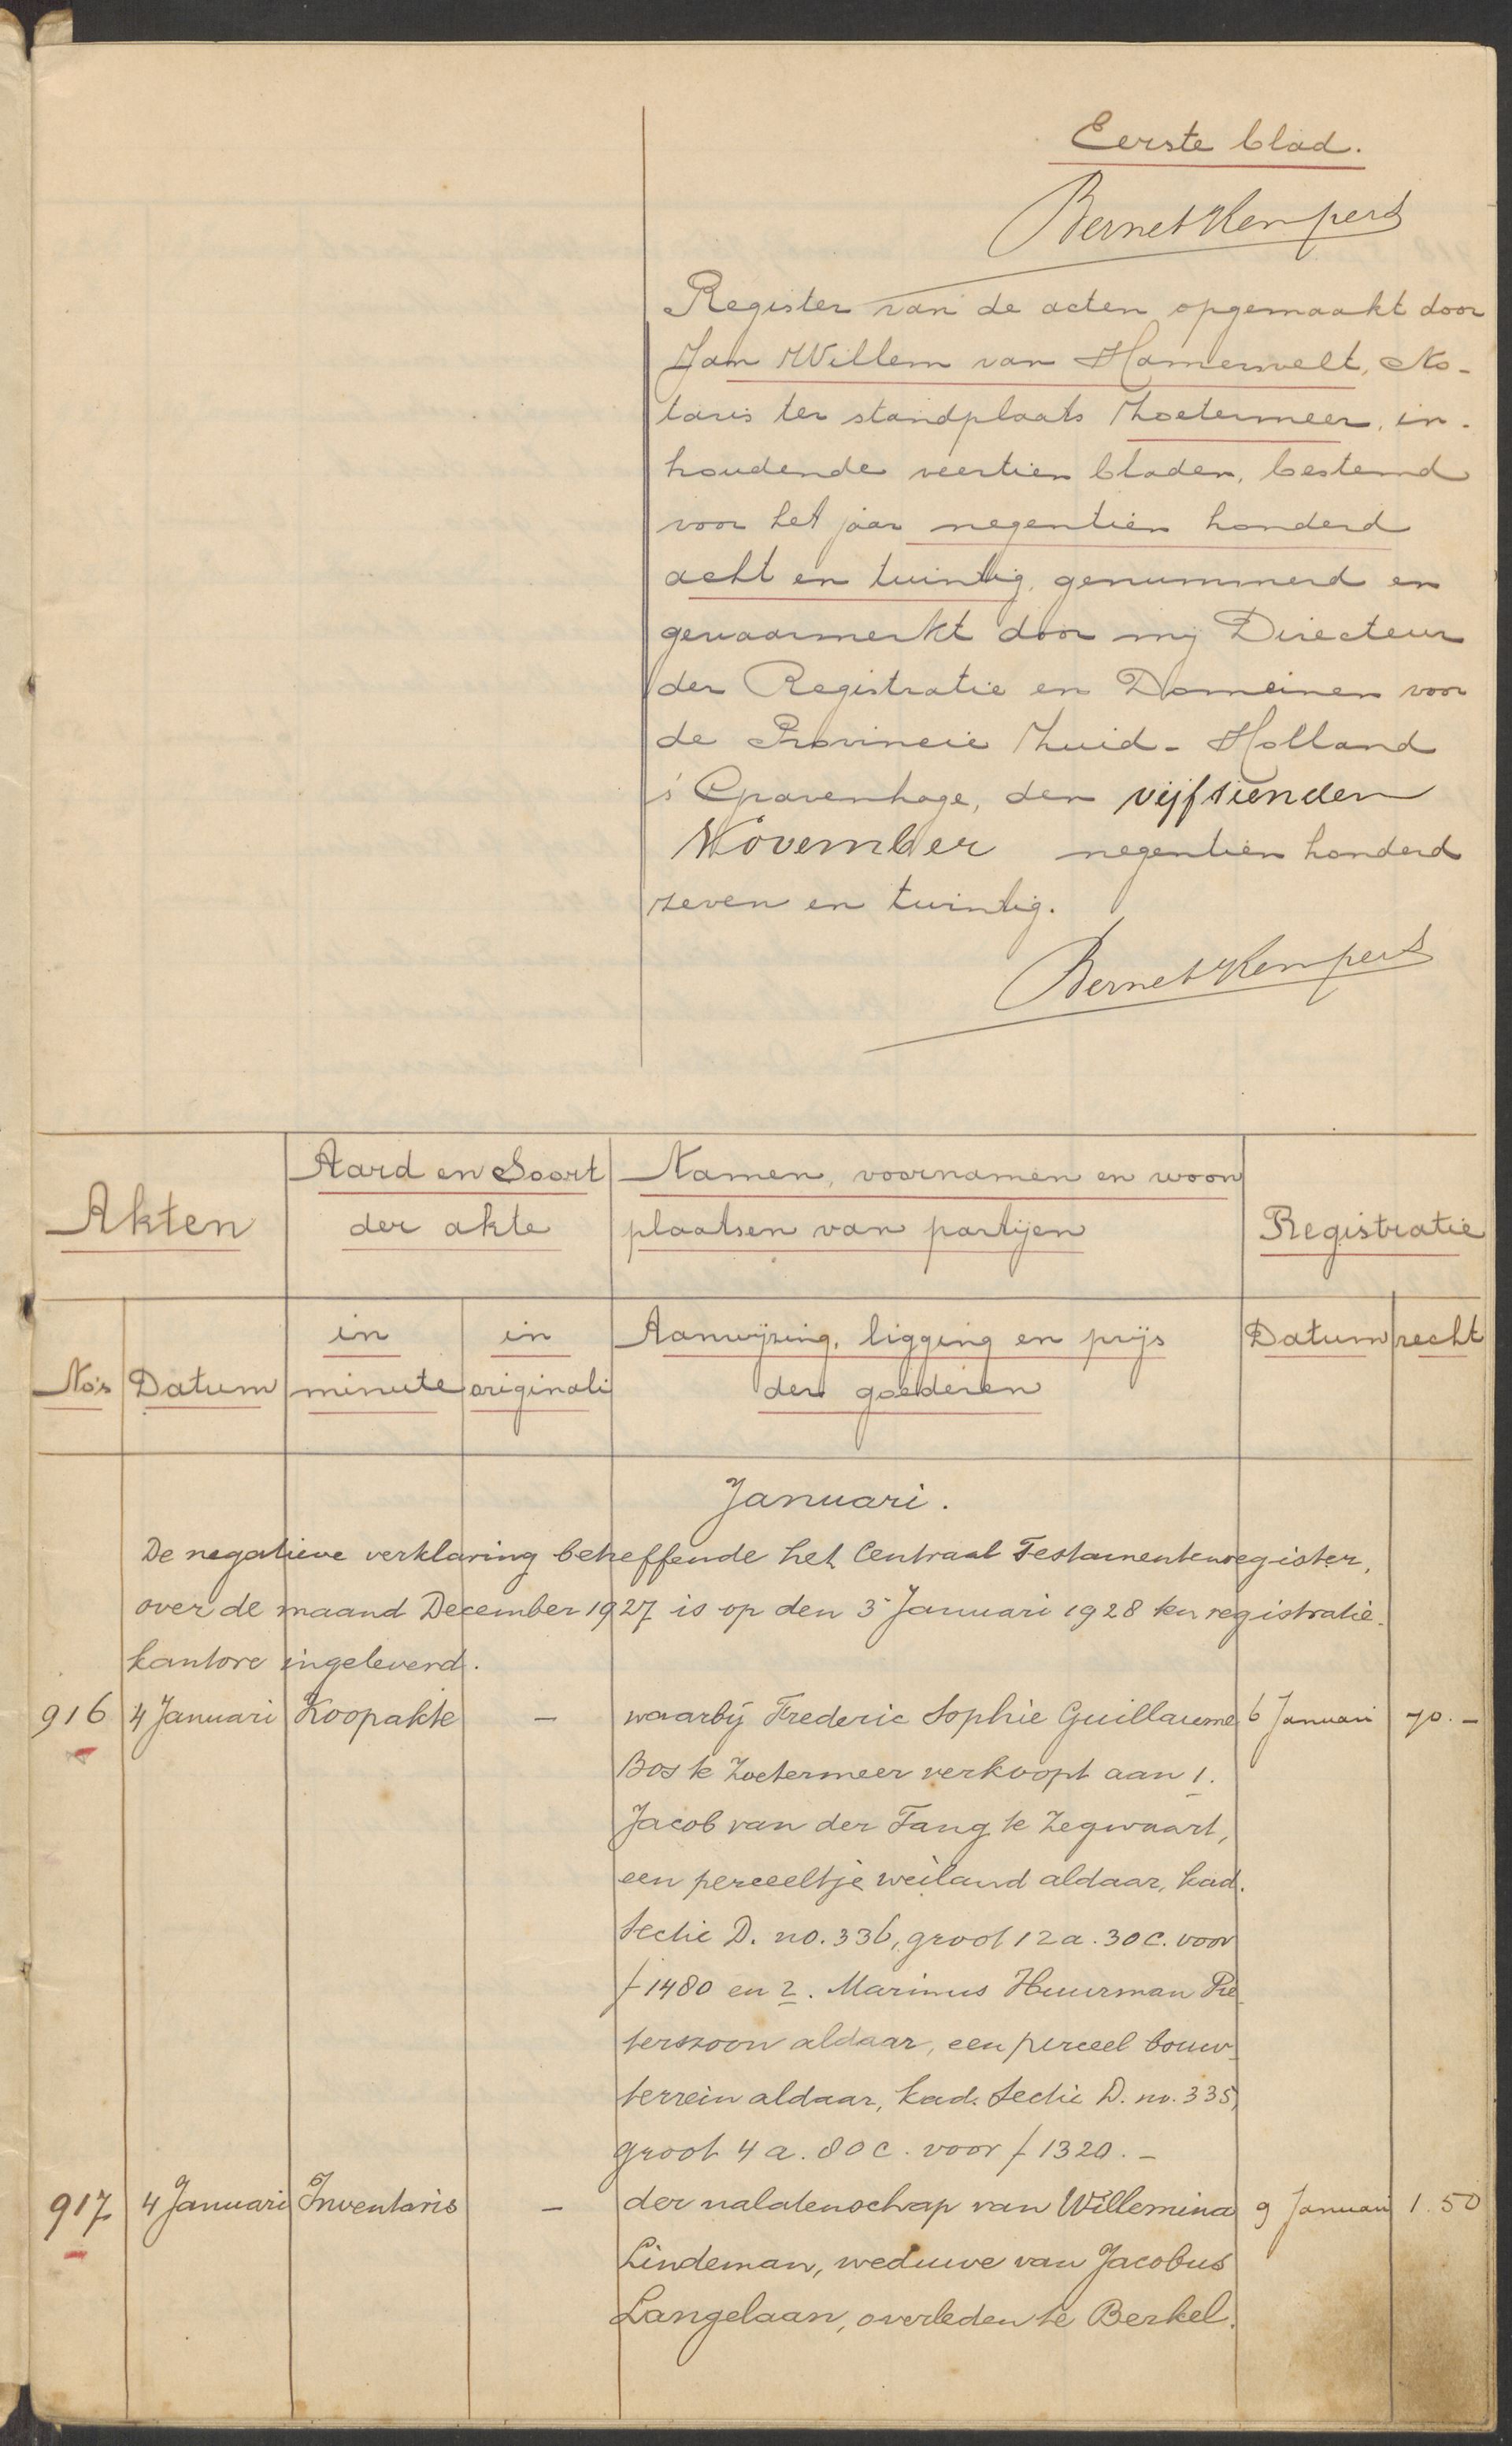 Eerste blad.
Bernet Kempers
Register van de acten opgemaakt door
Jan Willem van Hamerwelt, No-
taris ter standplaats Zoetermeer, in-
houdende veertien bladen, bestemd
voor het jaar negentien honderd
acht en twintig, genummerd en
gewaarmerkt door mij Directeur
der Registratie en Domeinen voor
de Provincie Zuid-Holland
's Gravenhage, den vijftienden
November negentien honderd
zeven en twintig.
Bernet Kempers
Akten
Aard en Soort
der akte
Namen, voornamen en woon
plaatsen van partijen
Registratie
No's Datum
in minute
in originali
Aanwijzing, ligging en prijs
der goederen
Datum recht
Januari.
De negatieve verklaring betreffende het Centraal Testamentenregister,
over de maand December 1927 is op den 3 Januari 1928 ten registratie-
kantore ingeleverd.
916 4 Januari Koopakte — waarbij Frederic Sophie Guillaume 6 Januari 70.-
Bos te Zoetermeer verkoopt aan 1.
Jacob van der Tang te Zegwaart,
een perceeltje weiland aldaar, kad.
sectie D. no. 336, groot 12 a. 30 c. voor
f 1480 en 2. Marinus Huurman Pie
terszoon aldaar, een perceel bouw-
terrein aldaar, kad. sectie D. no. 335,
groot 4 a. 80 c. voor f 1320.-
917 4 Januari Inventaris — der nalatenschap van Willemina 9 Januari 1.50
Lindeman, weduwe van Jacobus
Langelaan, overleden te Berkel.